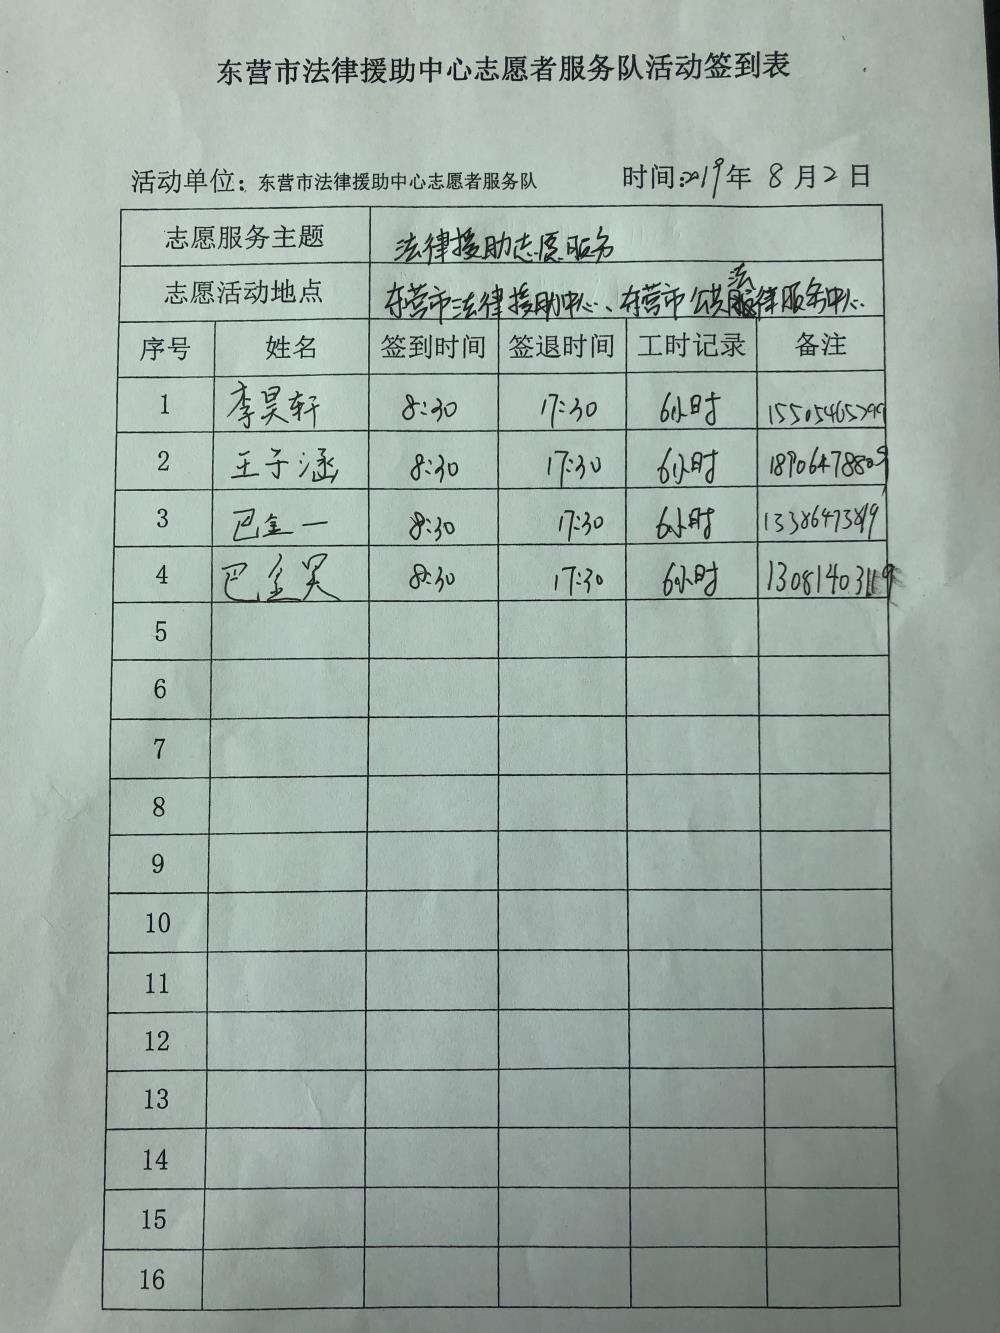 东营市法律援助中心志愿者服务队活动签到表
活动单位：东营市法律援助中心志愿者服务队 时间:2019年 8 月 2 日
志愿服务主题 法律援助志愿服务
志愿活动地点 东营市法律援助中心、东营市公共法律服务中心
序号 姓名 签到时间 签退时间 工时记录 备注
1 李昊轩 8:30 17:30 6小时
2 王子涵 8:30 17:30 6小时 18906478809
3 巴金一 8:30 17:30 6小时 13386473819
4 巴金昊 8:30 17:30 6小时
5
6
7
8
9
10
11
12
13
14
15
16